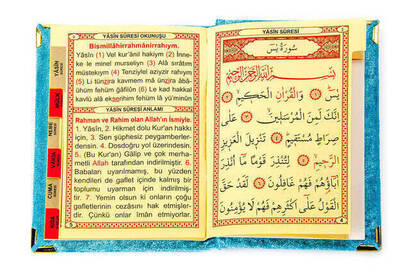 YÂSÎN SÛRESİ OKUNUŞU
Bismillâhirrahmânirrahıym.
Yâsîn (1) Vel kur'ânil hakiym (2) İnne-
ke le minel murseliyn (3) Alâ sırâtım
müstekıym (4) Tenziylel azizir rahıym
(5) Li tünzira kavmem mâ ünzira âbâ-
ühüm fehüm ğâfilûn (6) Le kad hakkal
kavlü alâ ekserihim fehüm lâ yü'minûn
YÂSÎN SÛRESİ ANLAMI
Rahman ve Rahim olan Allah'ın İsmiyle.
1. Yâsîn, 2. Hikmet dolu Kur'an hakkı
için, 3. Sen şüphesiz peygamberler-
densin. 4. Dosdoğru yol üzerindesin.
5. (Bu Kur'an) Gâlip ve çok merha-
metli Allah tarafından indirilmiştir. 6.
Babaları uyarılmamış, bu yüzden
kendileri de gaflet içinde kalmış bir
toplumu uyarman için indirilmiş-
tir. 7. Yemin olsun ki onların çoğu
gafletlerinin cezasını hak etmişler-
dir. Çünkü onlar iman etmiyorlar.
YÂSİN
MÜLK
NEBE
CUMA
KISA
YÂSÎN SÛRESİ
سُورَةُ يٰسٓ
بِسْمِ اللّٰهِ الرَّحْمٰنِ الرَّحِيمِ
يٰسٓ ﴿١﴾ وَالْقُرْاٰنِ الْحَكِيمِ ﴿٢﴾
اِنَّكَ لَمِنَ الْمُرْسَلِينَ ﴿٣﴾ عَلٰى
صِرَاطٍ مُسْتَقِيمٍ ﴿٤﴾ تَنْزِيلَ الْعَزِيزِ
الرَّحِيمِ ﴿٥﴾ لِتُنْذِرَ قَوْمًا مَٓا اُنْذِرَ
اٰبَٓاؤُهُمْ فَهُمْ غَافِلُونَ ﴿٦﴾ لَقَدْ حَقَّ
الْقَوْلُ عَلٰٓى اَكْثَرِهِمْ فَهُمْ لَا يُؤْمِنُونَ